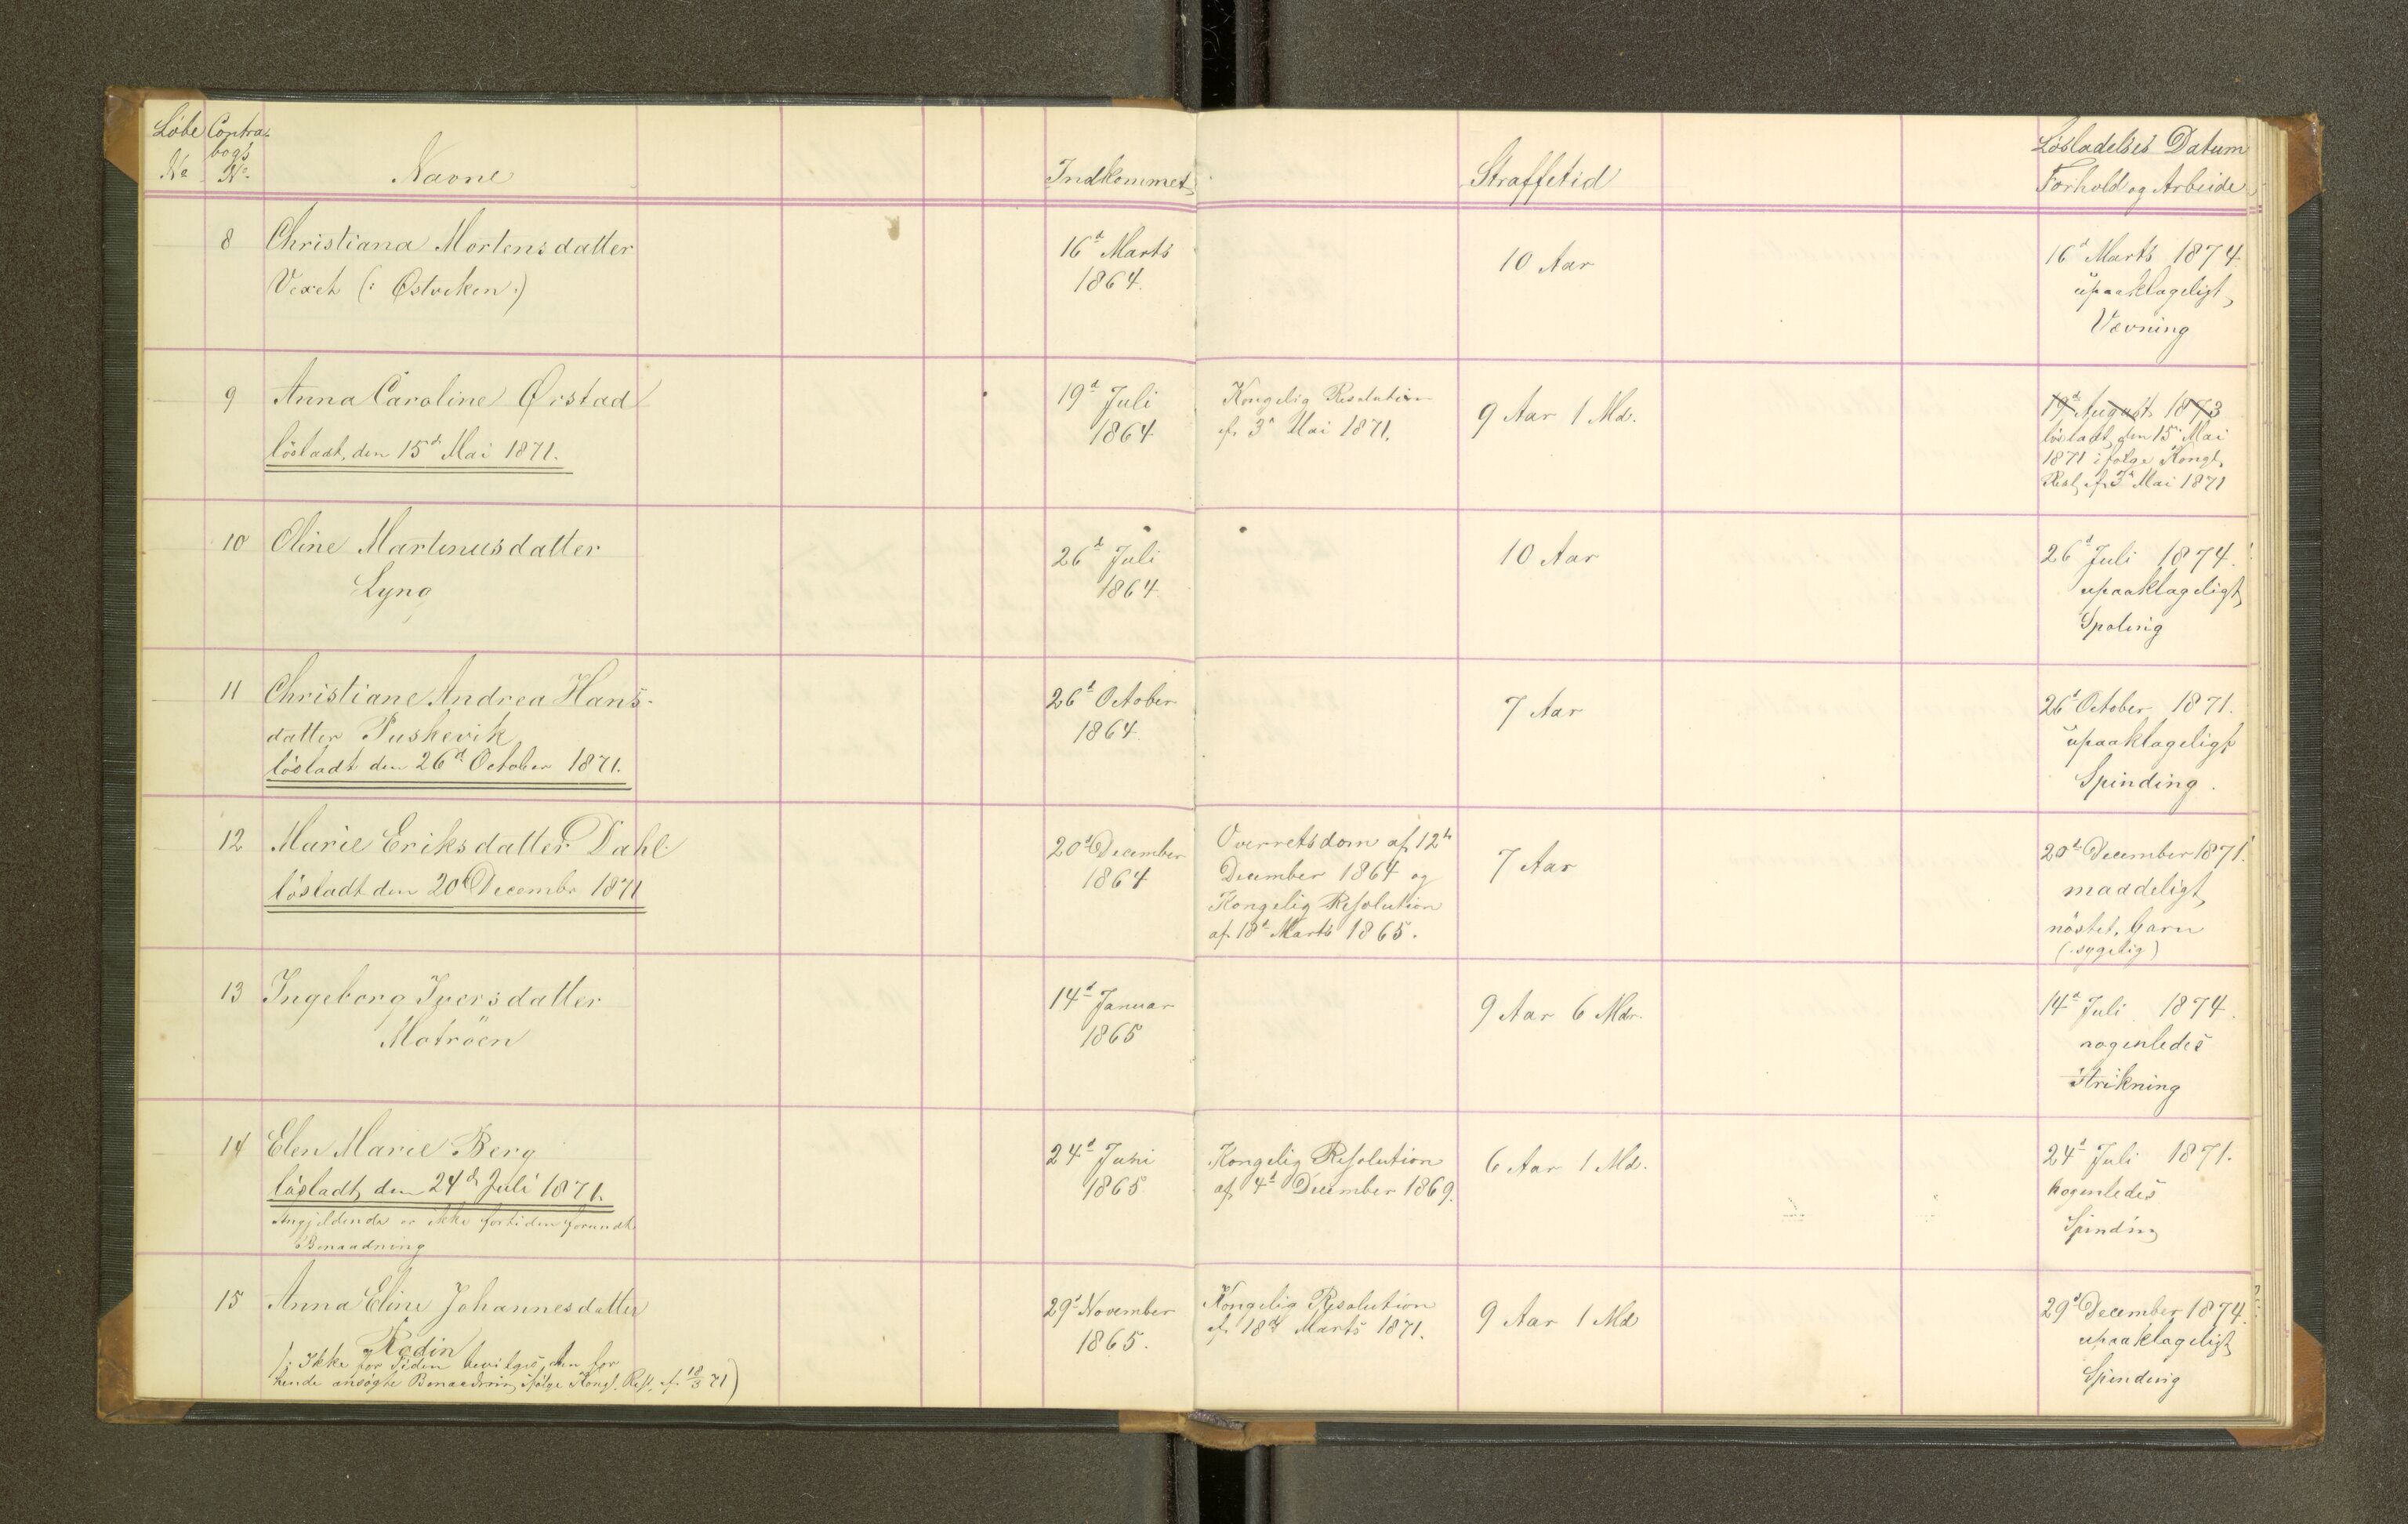 Löbe Contra-
bogs
No No
Navne
Indkommet
Straffetid
Lösladelses Datum
Forhold og Arbeide
8 Christiana Mortensdatter
Vexet (: Østviken :)
16d Marts
1864.
10 Aar
16d Marts 1874.
upaaklageligt,
Vævning
9 Anna Caroline Ørstad
lösladt, den 15d Mai 1871.
19d Juli
1864
Kongelig Resolution
af 3d Mai 1871.
9 Aar 1 Md.
19d August 1873
lösladt, den 15d Mai
1871 ifølge Kongl.
Resl. af 3d Mai 1871
10 Eline Martinusdatter
Lyng
26d Juli
1864
10 Aar
26d Juli 1874.
upaaklageligt
Spoling
11 Christiane Andrea Hans-
datter
lösladt den 26d October 1871.
26d October
1864.
7 Aar
26d October 1871.
upaaklageligt
Spinding.
12 Marie Eriksdatter Dahl.
lösladt den 20d Decembr 1871
20d December
1864
Overretsdom af 12te
December 1864 og
Kongelig Resolution
af 18d Marts 1865.
7 Aar
20d December 1871.
maadeligt,
nöstet, Garn
(:sygelig)
13 Ingeborg Iversdatter
Motröen
14d Januar
1865
9 Aar 6 Mdr.
14d Juli 1874.
nogenledes
Strikning
14 Elen Marie Berg
lösladt, den 24d Juli 1871.
Angjeldende er ikke fortiden forundt
Benaadning
24d Juni
1865
Kongelig Resolution
af 4d December 1869.
6 Aar 1 Md.
24d Juli 1871.
nogenledes
Spinding
15 Anna Eline Johannesdatter
Rødin
(: Ikke for Tiden bevilges den for
hende ansøgte Benaadning ifølge Kongl. Resl. af 18/3 71)
29d November
1865.
Kongelig Resolution
af 18d Marts 1871.
9 Aar 1 Md
29d December 1874.
upaaklageligt
Spinding